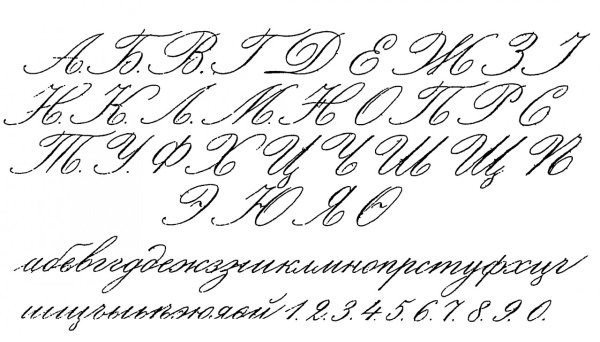 А. Б. В. Г Д Е Ж З І
И. К. Л. М. Н О П Р С
Т. У. Ф Х Ц Ч Ш Щ Ѣ
Э Ю Я Ѳ
абвггдежззиклмнопрстуфхцч
шщъыьѣэюяѳй 1. 2. 3. 4. 5. 6. 7. 8. 9. 0.